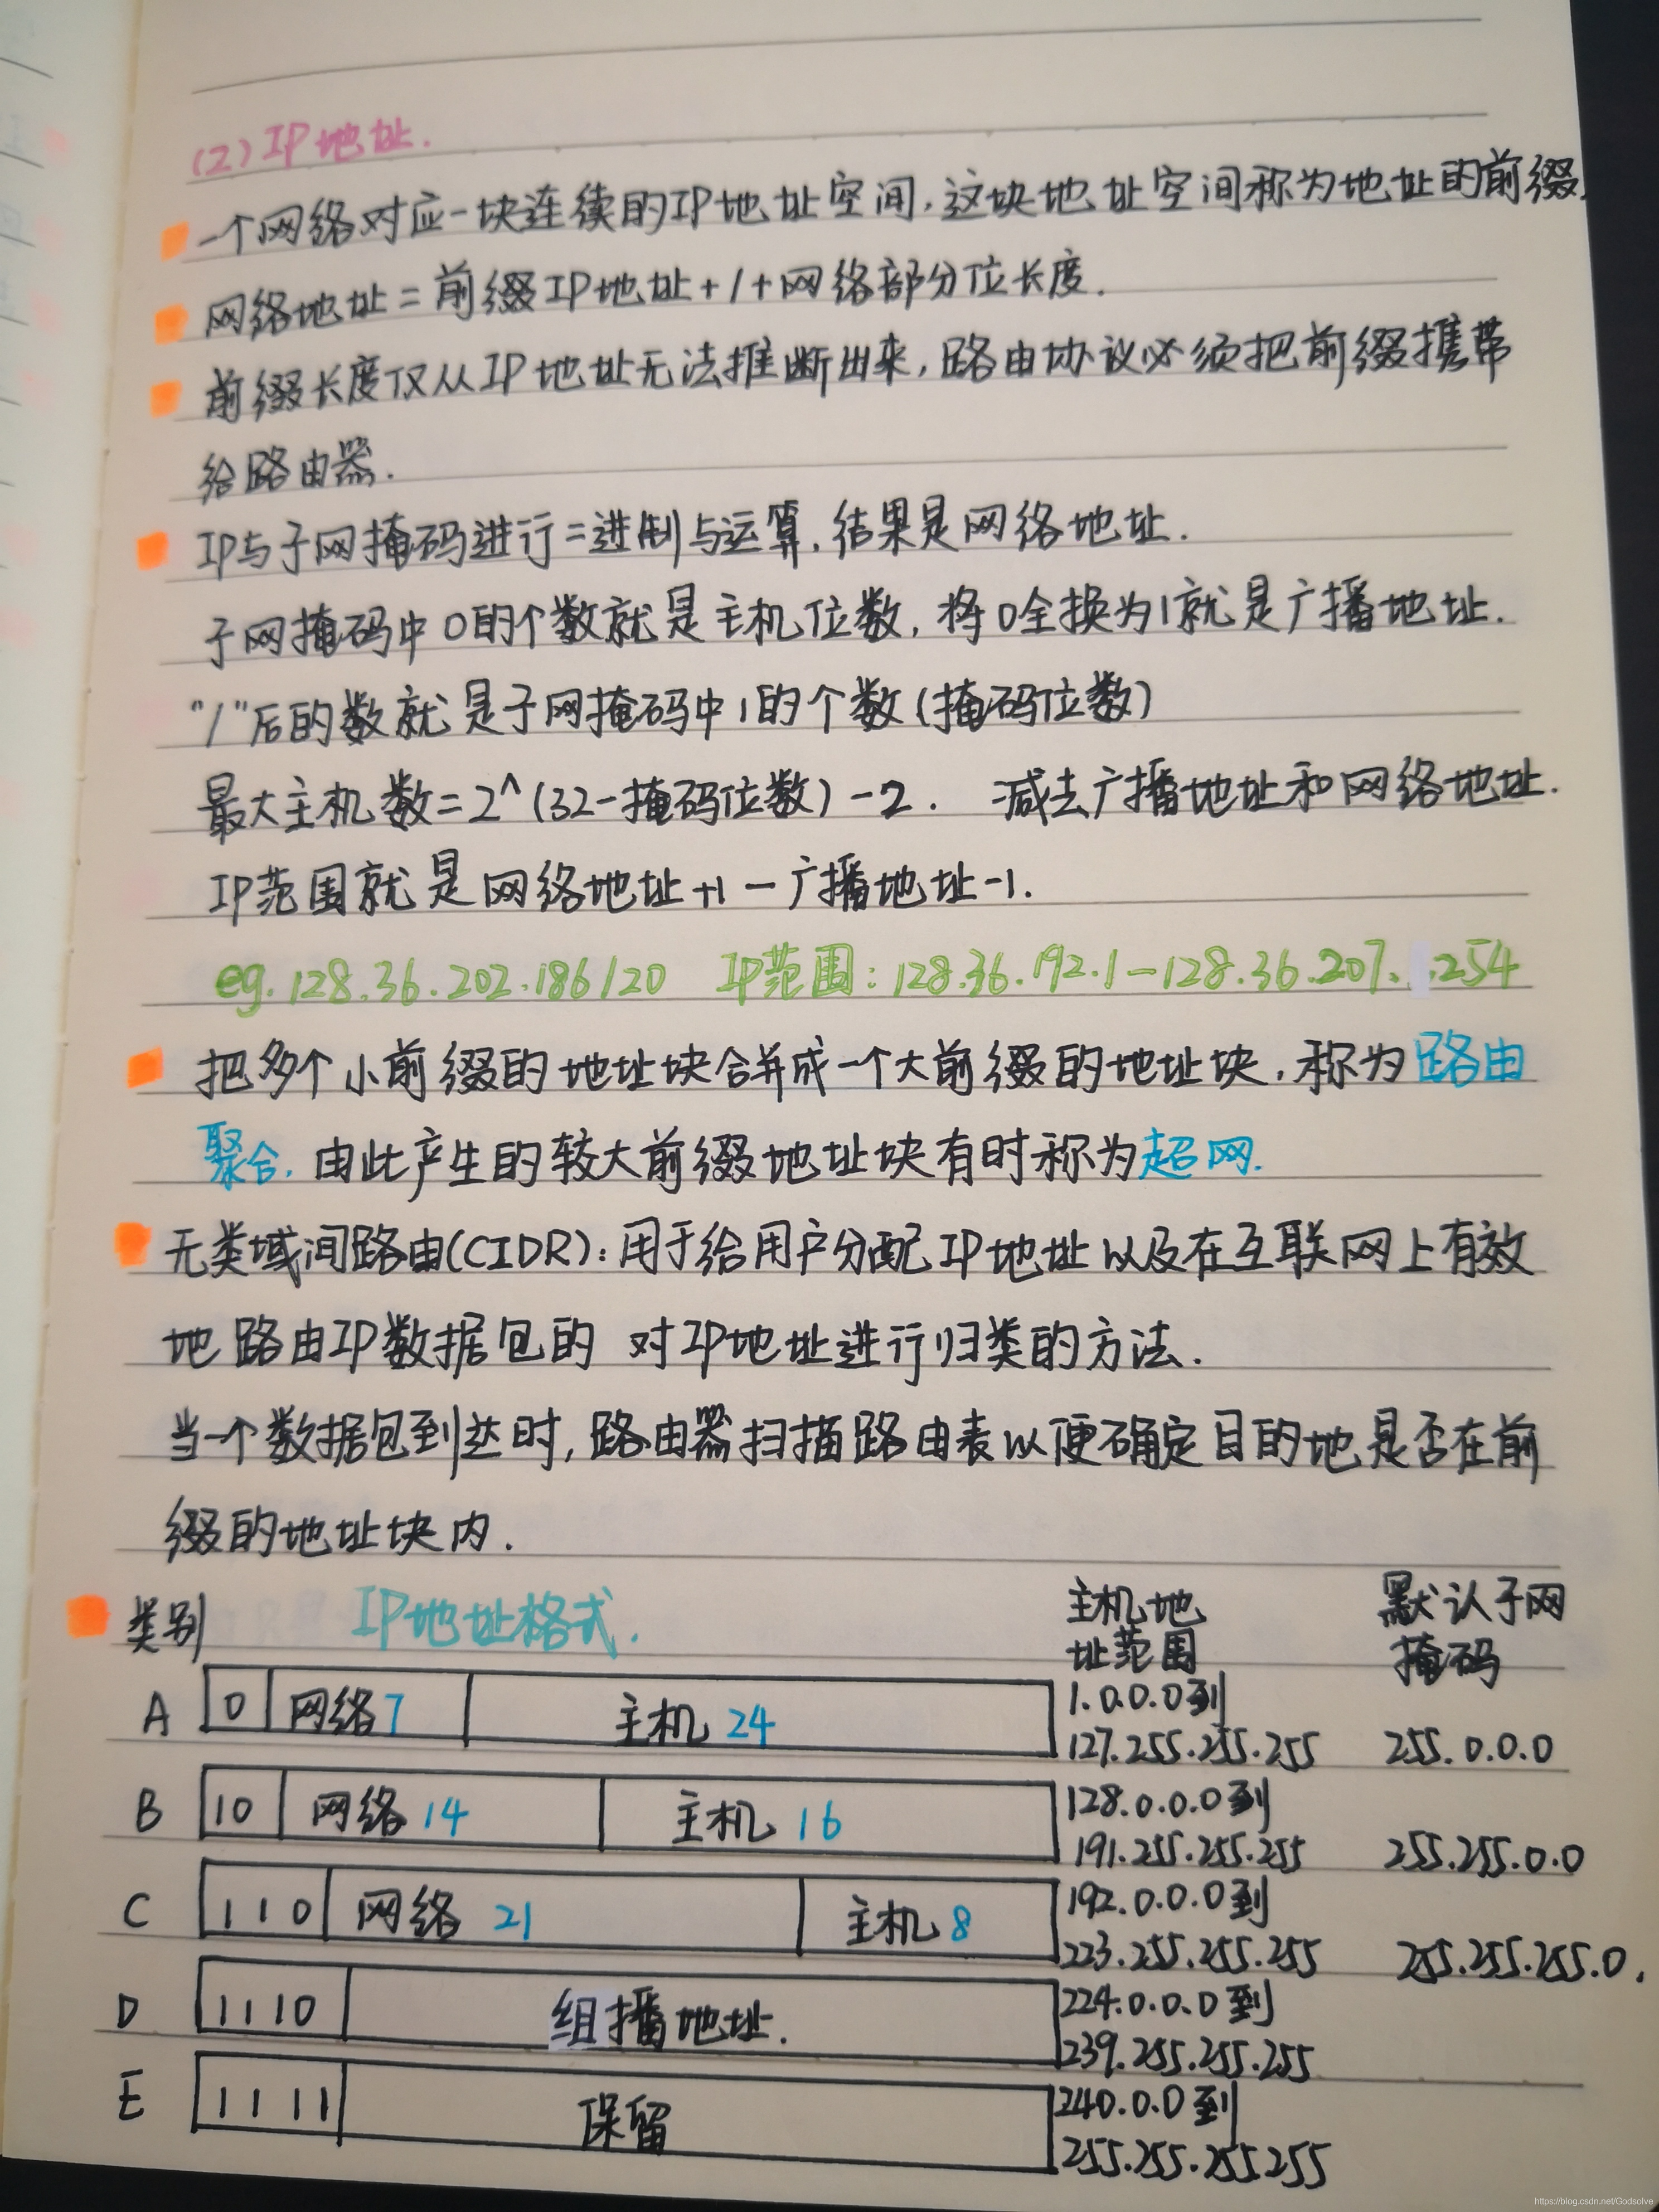 (2) IP地址.
一个网络对应一块连续的IP地址空间,这块地址空间称为地址的前缀.
网络地址=前缀IP地址+/+网络部分位长度.
前缀长度仅从IP地址无法推断出来,路由协议必须把前缀携带
给路由器.
IP与子网掩码进行二进制与运算,结果是网络地址.
子网掩码中0的个数就是主机位数,将0全换为1就是广播地址.
"/"后的数就是子网掩码中1的个数(掩码位数)
最大主机数=2^(32-掩码位数)-2. 减去广播地址和网络地址.
IP范围就是网络地址+1-广播地址-1.
eg.128.36.202.186/20 IP范围:128.36.192.1-128.36.207.254
把多个小前缀的地址块合并成一个大前缀的地址块,称为路由
聚合.由此产生的较大前缀地址块有时称为超网.
无类域间路由(CIDR):用于给用户分配IP地址以及在互联网上有效
地路由IP数据包的 对IP地址进行归类的方法.
当一个数据包到达时,路由器扫描路由表以便确定目的地是否在前
缀的地址块内.
类别 IP地址格式. 主机地 默认子网
址范围 掩码
A 0 网络7 主机24 1.0.0.0到
127.255.255.255 255.0.0.0
B 10 网络14 主机16 128.0.0.0到
191.255.255.255 255.255.0.0
C 110 网络21 主机8 192.0.0.0到
223.255.255.255 255.255.255.0.
D 1110 组播地址. 224.0.0.0到
239.255.255.255
E 1111 保留 240.0.0.0到
255.255.255.255
https://blog.csdn.net/Godsolve